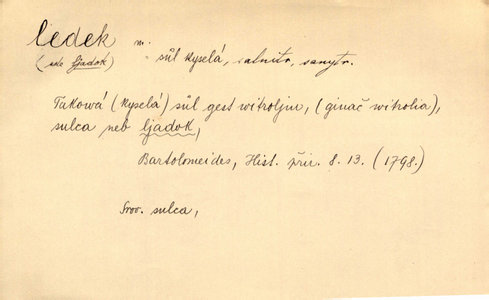 ledek m.
(neb ljadok) sůl kyselá, salnitr, sanytr.
Taková (kyselá) sůl gest witroljm, (ginač witrolia),
sulca neb ljadok,
Bartolomeides, Hist. přir. 8. 13. (1798.)
Srov. sulca,